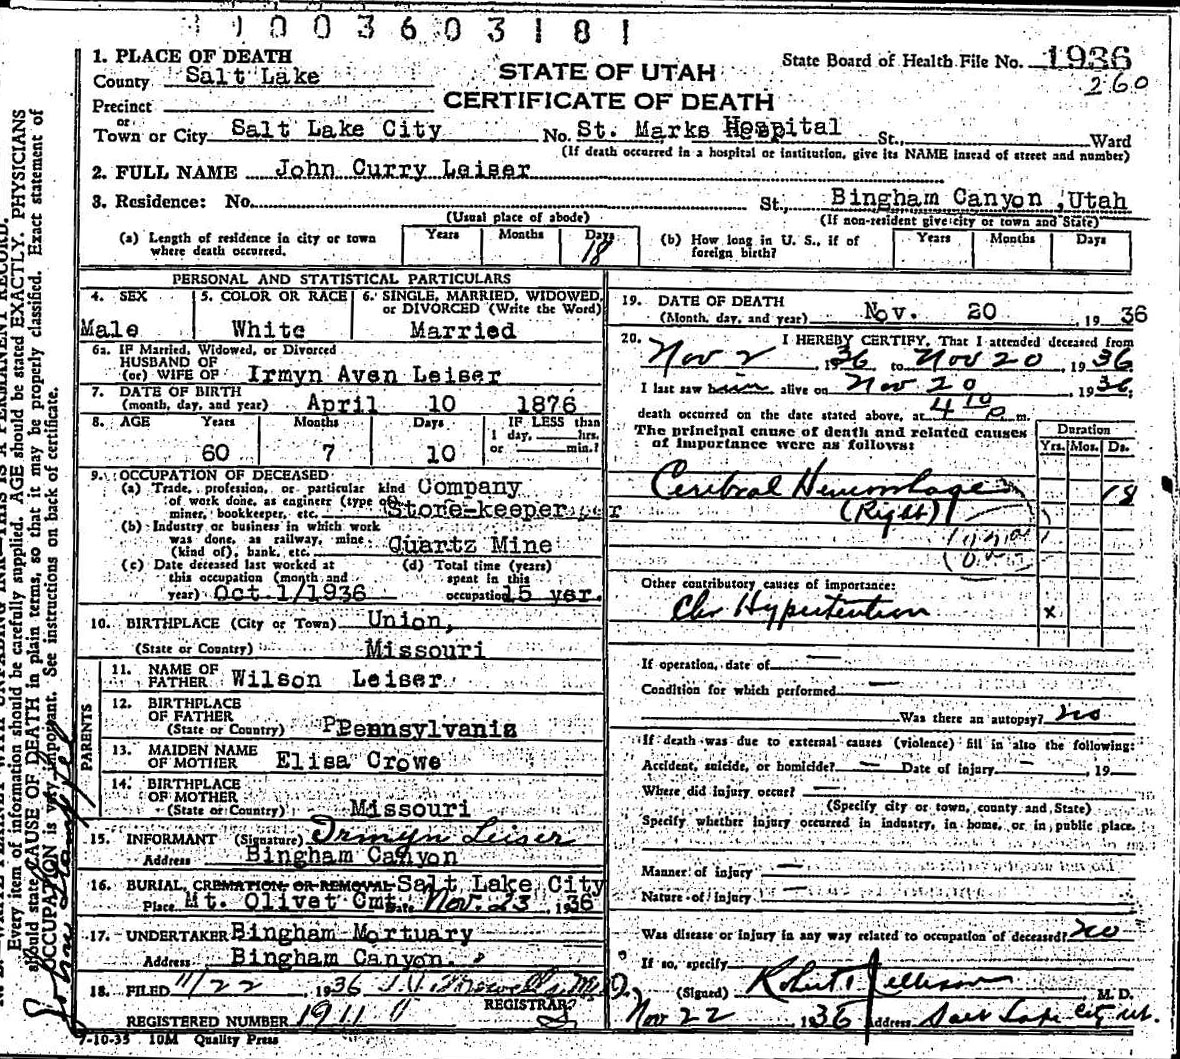 1003603181
1. PLACE OF DEATH
State Board of Health File No. 1936
County Salt Lake
STATE OF UTAH
260
Precinct
CERTIFICATE OF DEATH
or
Town or City Salt Lake City No. St. Marks Hospital St., Ward
(If death occurred in a hospital or institution, give its NAME instead of street and number)
2. FULL NAME John Curry Leiser
3. Residence: No. St., Bingham Canyon, Utah
(Usual place of abode) (If non-resident give city or town and State)
(a) Length of residence in city or town where death occurred. Years Months Days 18
(b) How long in U. S., if of foreign birth? Years Months Days
PERSONAL AND STATISTICAL PARTICULARS
4. SEX 5. COLOR OR RACE 6. SINGLE, MARRIED, WIDOWED, or DIVORCED (Write the Word)
Male White Married
6a. IF Married, Widowed, or Divorced
HUSBAND OF
(or) WIFE OF Irmyn Aven Leiser
7. DATE OF BIRTH
(month, day, and year) April 10 1876
8. AGE Years Months Days IF LESS than
1 day, hrs.
60 7 10 or min.?
9. OCCUPATION OF DECEASED
(a) Trade, profession, or particular kind Company
of work done, as engineer (type of
miner, bookkeeper, etc. Store-keeper
(b) Industry or business in which work
was done, as railway, mine
(kind of), bank, etc. Quartz Mine
(c) Date deceased last worked at this occupation (month and year) Oct 1/1936
(d) Total time (years) spent in this occupation 15 yer.
10. BIRTHPLACE (City or Town) Union,
(State or Country) Missouri
PARENTS
11. NAME OF FATHER Wilson Leiser
12. BIRTHPLACE OF FATHER
(State or Country) PPennsylvania
13. MAIDEN NAME OF MOTHER Elisa Crowe
14. BIRTHPLACE OF MOTHER
(State or Country) Missouri
15. INFORMANT (Signature) Irmyn Leiser
Address Bingham Canyon
16. BURIAL, CREMATION OR REMOVAL Salt Lake City
Place Mt. Olivet Cmt. Date Nov. 23, 1936
17. UNDERTAKER Bingham Mortuary
Address Bingham Canyon.
18. FILED 11/22, 1936
REGISTRAR
REGISTERED NUMBER 1911
7-10-35 10M Quality Press
19. DATE OF DEATH
(Month, day, and year) Nov. 20, 1936
20. I HEREBY CERTIFY, That I attended deceased from
Nov 2, 1936 to Nov 20, 1936
I last saw him alive on Nov 20, 1936,
death occurred on the date stated above, at 4 10 p m.
The principal cause of death and related causes of importance were as follows:
Duration
Yrs. Mos. Ds.
Cerebral Hemorrhage 18
(Right)
Other contributory causes of importance:
Chr Hypertention x
If operation, date of —
Condition for which performed —
Was there an autopsy? no
If death was due to external causes (violence) fill in also the following:
Accident, suicide, or homicide? — Date of injury —, 19
Where did injury occur? —
(Specify city or town, county and State)
Specify whether injury occurred in industry, in home, or in public place.
Manner of injury —
Nature of injury —
Was disease or injury in any way related to occupation of deceased? no
If so, specify
(Signed) Robert Jellison M. D.
Nov 22 1936 Address Salt Lake City Ut.
THIS IS A PERMANENT RECORD.
Every item of information should be carefully supplied. AGE should be stated EXACTLY. PHYSICIANS
should state CAUSE OF DEATH in plain terms, so that it may be properly classified. Exact statement of
OCCUPATION is very important. See instructions on back of certificate.